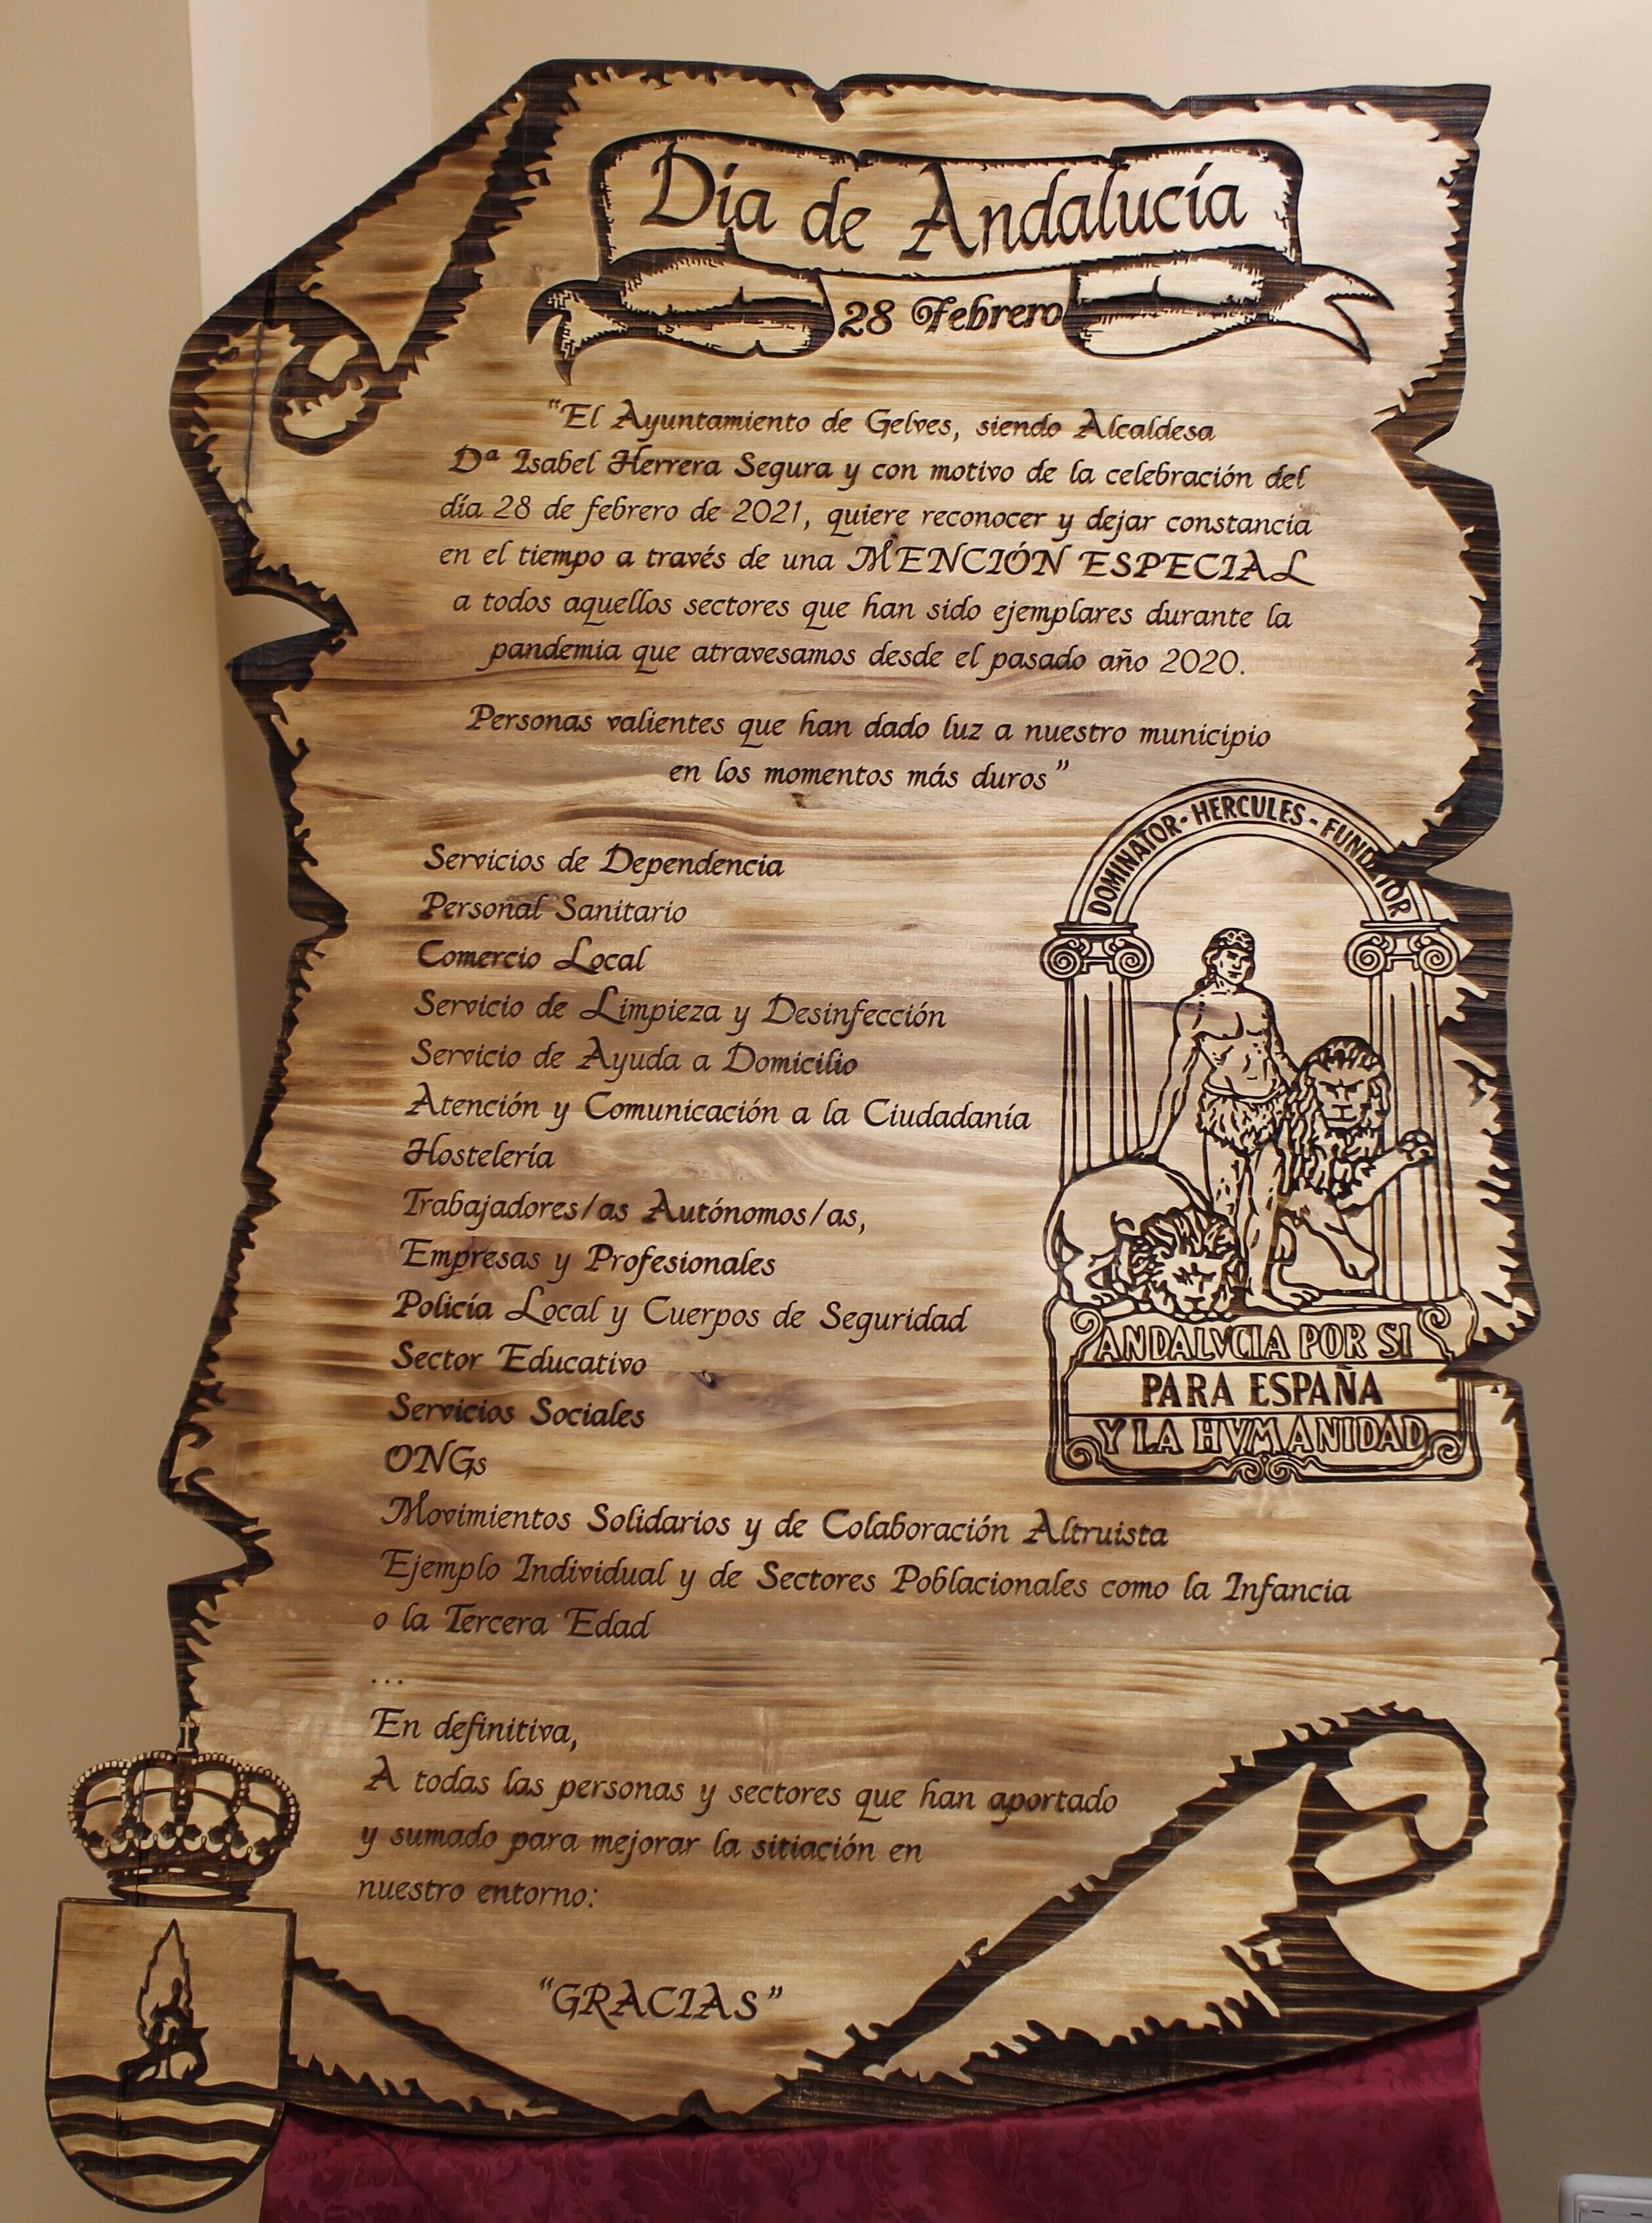 Día de Andalucía
28 Febrero
"El Ayuntamiento de Gelves, siendo Alcaldesa
Dª Isabel Herrera Segura y con motivo de la celebración del
día 28 de febrero de 2021, quiere reconocer y dejar constancia
en el tiempo a través de una MENCIÓN ESPECIAL
a todos aquellos sectores que han sido ejemplares durante la
pandemia que atravesamos desde el pasado año 2020.
Personas valientes que han dado luz a nuestro municipio
en los momentos más duros"
Servicios de Dependencia
Personal Sanitario
Comercio Local
Servicio de Limpieza y Desinfección
Servicio de Ayuda a Domicilio
Atención y Comunicación a la Ciudadanía
Hostelería
Trabajadores/as Autónomos/as,
Empresas y Profesionales
Policía Local y Cuerpos de Seguridad
Sector Educativo
Servicios Sociales
ONGs
Movimientos Solidarios y de Colaboración Altruista
Ejemplo Individual y de Sectores Poblacionales como la Infancia
o la Tercera Edad
...
En definitiva,
A todas las personas y sectores que han aportado
y sumado para mejorar la sitiación en
nuestro entorno:
"GRACIAS"
DOMINATOR-HERCULES-FUNDATOR
ANDALVCIA POR SI
PARA ESPAÑA
Y LA HVMANIDAD